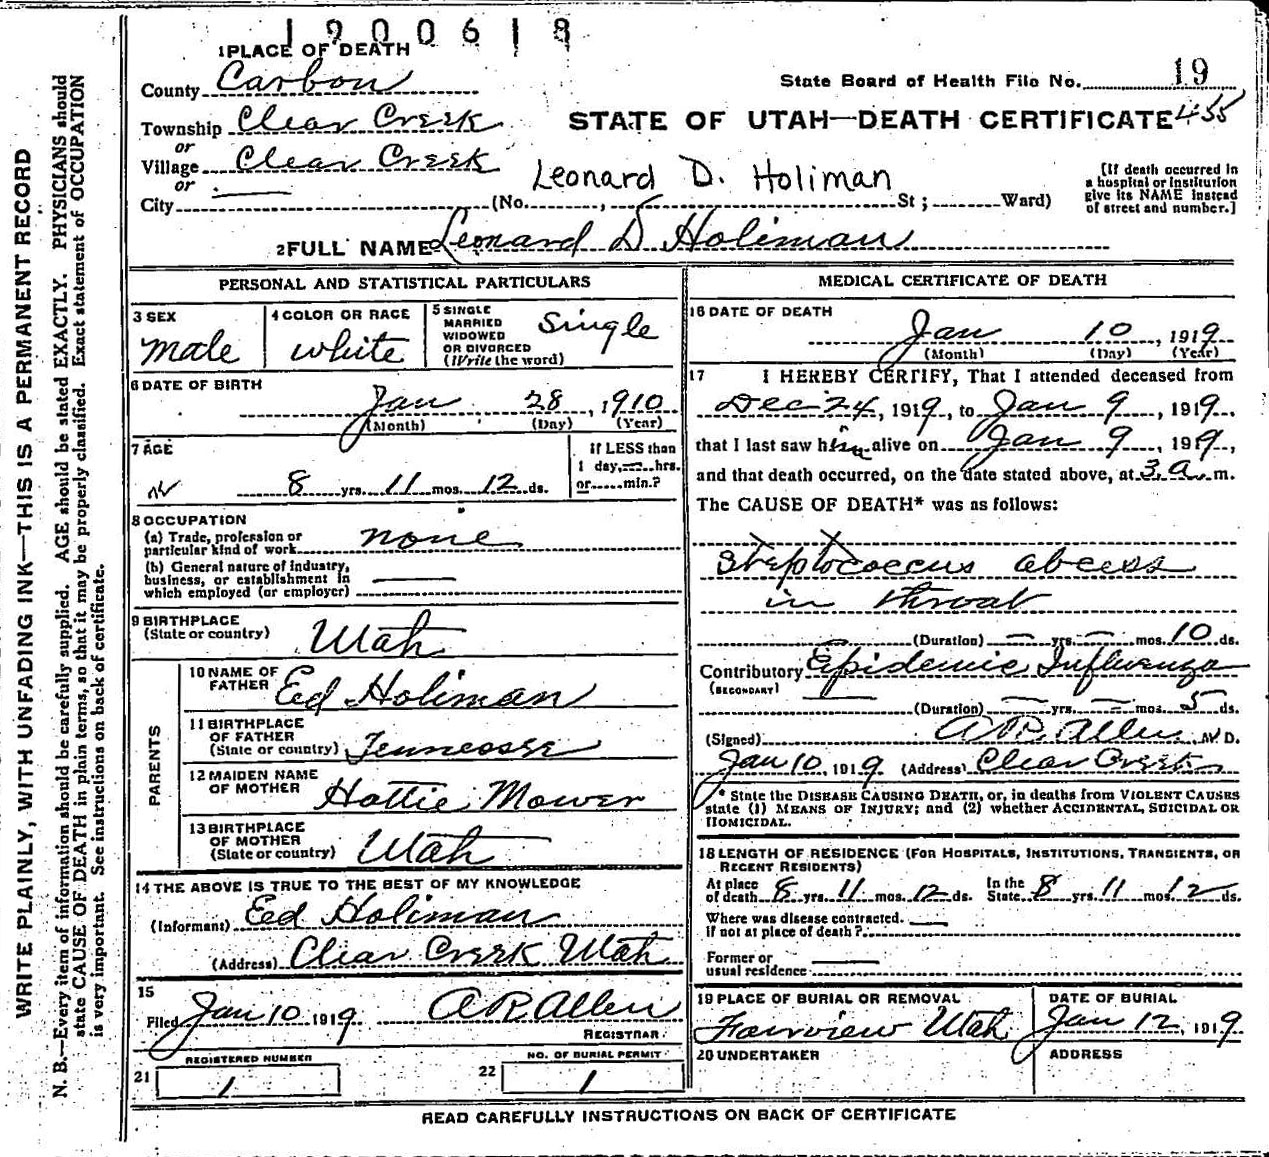 1900618
1 PLACE OF DEATH
County Carbon
State Board of Health File No. 19
Township Clear Creek
STATE OF UTAH—DEATH CERTIFICATE 455
or
Village Clear Creek
or
Leonard D. Holiman
[If death occurred in a hospital or institution give its NAME instead of street and number.]
City (No. , St ; Ward)
2 FULL NAME Leonard D Holiman
PERSONAL AND STATISTICAL PARTICULARS
3 SEX
Male
4 COLOR OR RACE
white
5 SINGLE
MARRIED
WIDOWED
OR DIVORCED
(Write the word)
Single
6 DATE OF BIRTH
Jan 28, 1910
(Month) (Day) (Year)
7 AGE
8 yrs. 11 mos. 12 ds.
If LESS than
1 day,-----hrs.
or.....min.?
8 OCCUPATION
(a) Trade, profession or
particular kind of work none
(b) General nature of industry,
business, or establishment in
which employed (or employer)
9 BIRTHPLACE
(State or country) Utah
PARENTS
10 NAME OF
FATHER Ed Holiman
11 BIRTHPLACE
OF FATHER
(State or country) Tennessee
12 MAIDEN NAME
OF MOTHER Hattie Mower
13 BIRTHPLACE
OF MOTHER
(State or country) Utah
14 THE ABOVE IS TRUE TO THE BEST OF MY KNOWLEDGE
(Informant) Ed Holiman
(Address) Clear Creek Utah
15
Filed Jan 10 1919 A R Allen
REGISTRAR
21 REGISTERED NUMBER
1
22 NO. OF BURIAL PERMIT
1
MEDICAL CERTIFICATE OF DEATH
16 DATE OF DEATH
Jan 10, 1919
(Month) (Day) (Year)
17 I HEREBY CERTIFY, That I attended deceased from
Dec 24, 1919, to Jan 9, 1919,
that I last saw him alive on Jan 9, 1919,
and that death occurred, on the date stated above, at 3 a. m.
The CAUSE OF DEATH* was as follows:
Streptococcus abcess
in throat
(Duration) — yrs. — mos. 10 ds.
Contributory Epidemic Influenza
(SECONDARY)
(Duration) — yrs. — mos. 5 ds.
(Signed) A R. Allen M. D.
Jan 10, 1919 (Address) Clear Creek
* State the DISEASE CAUSING DEATH, or, in deaths from VIOLENT CAUSES
state (1) MEANS OF INJURY; and (2) whether ACCIDENTAL, SUICIDAL OR
HOMICIDAL.
18 LENGTH OF RESIDENCE (FOR HOSPITALS, INSTITUTIONS, TRANSIENTS, OR
RECENT RESIDENTS)
At place
of death 8 yrs. 11 mos. 12 ds. In the
State 8 yrs. 11 mos. 12 ds.
Where was disease contracted.
if not at place of death?
Former or
usual residence
19 PLACE OF BURIAL OR REMOVAL
Fairview Utah
DATE OF BURIAL
Jan 12, 1919
20 UNDERTAKER
ADDRESS
READ CAREFULLY INSTRUCTIONS ON BACK OF CERTIFICATE
WRITE PLAINLY, WITH UNFADING INK—THIS IS A PERMANENT RECORD
N. B.—Every item of information should be carefully supplied. AGE should be stated EXACTLY. PHYSICIANS should
state CAUSE OF DEATH in plain terms, so that it may be properly classified. Exact statement of OCCUPATION
is very important. See instructions on back of certificate.